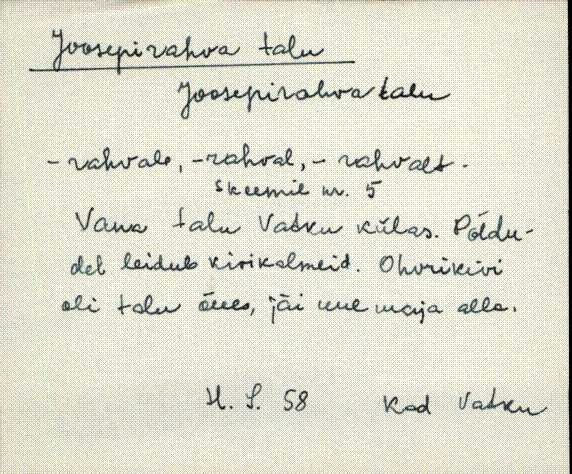 Joosepirahva talu
Joosepirahva talu
- rahvale, - rahval, - rahvalt.
Skeemil nr. 5
Vana talu Vatku külas. Põldu-
del leidub kivikalmeid. Ohvrikivi
oli talu õues, jäi uue maja alla.
H. S. 58 Kad Vatku